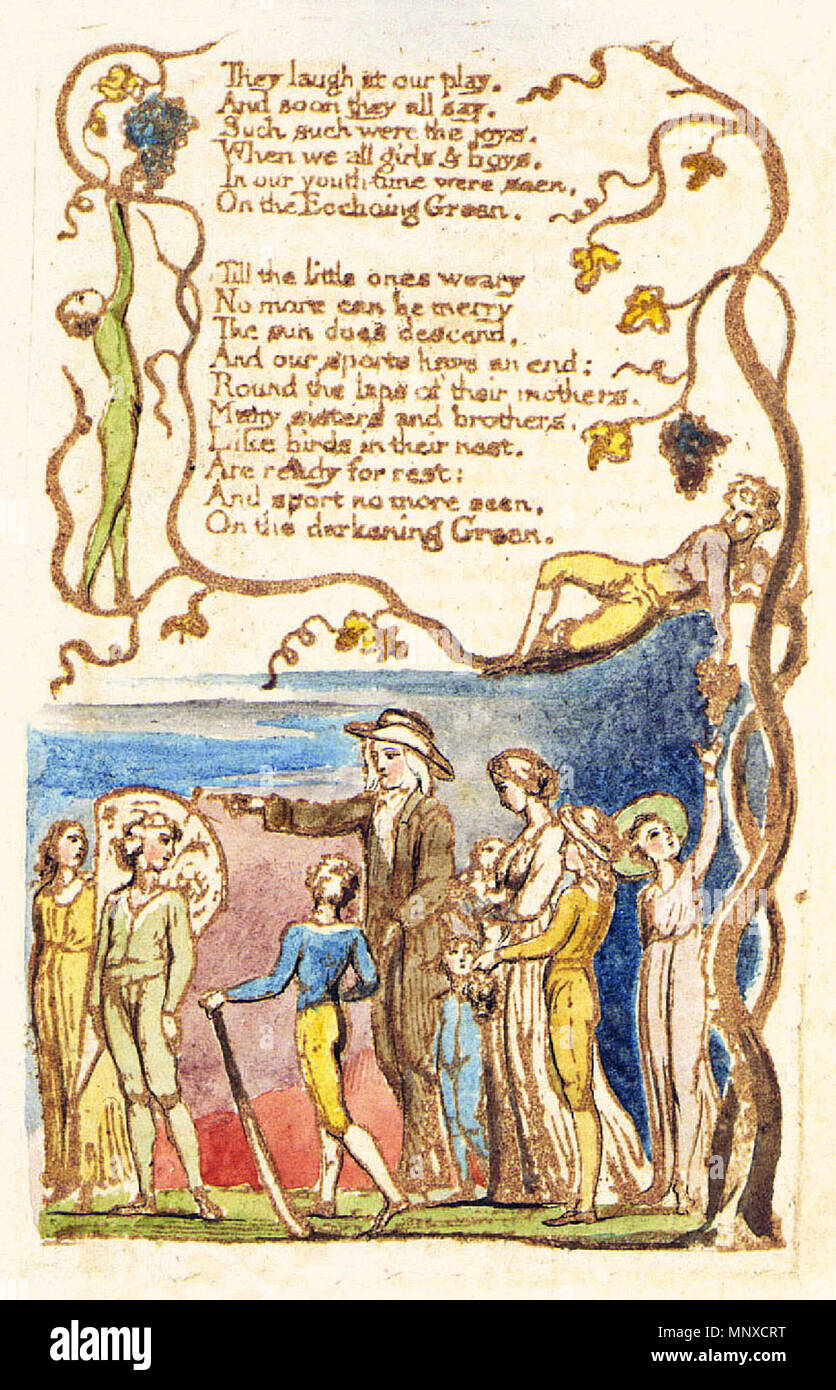 They laugh at our play,
And soon they all say.
Such such were the joys.
When we all girls & boys.
In our youth-time were seen,
On the Ecchoing Green.
Till the little ones weary
No more can be merry
The sun does descend,
And our sports have an end:
Round the laps of their mothers,
Many sisters and brothers,
Like birds in their nest,
Are ready for rest:
And sport no more seen,
On the darkening Green.
a
alamy
Image ID: MNXCRT
www.alamy.com